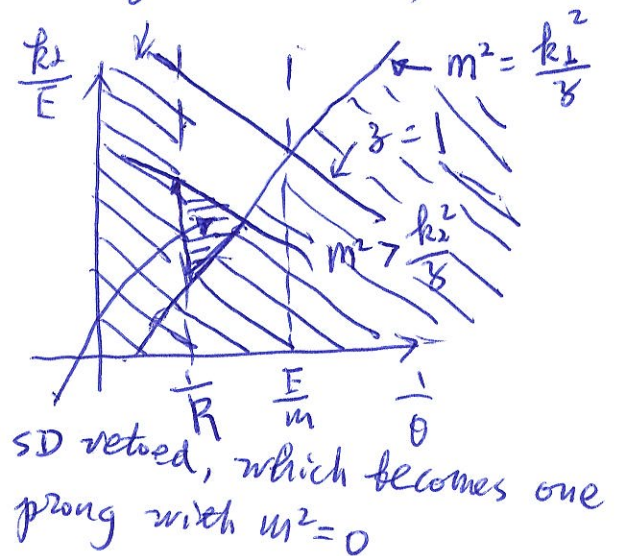 k⊥/E
m² = k⊥²/z
z = 1
m² > k⊥²/z
1/R
E/m
1/θ
SD vetoed, which becomes one
prong with m²=0